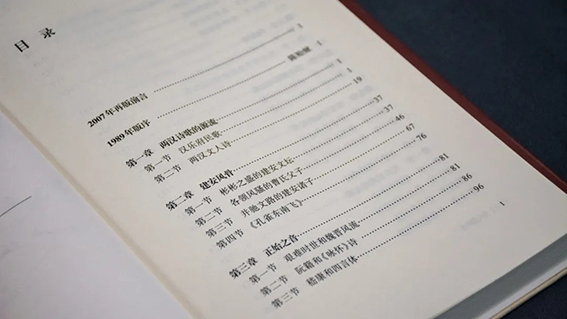 目 录
2007年再版前言 1
1989年版序 陈贻焮
第一章 两汉诗歌的源流 1
第一节 汉乐府民歌 1
第二节 两汉文人诗 19
第二章 建安风骨 37
第一节 彬彬之盛的建安文坛 37
第二节 各领风骚的曹氏父子 46
第三节 并驰文路的建安诸子 67
第四节 《孔雀东南飞》 76
第三章 正始之音 81
第一节 艰难时世和魏晋风流 81
第二节 阮籍和《咏怀》诗 86
第三节 嵇康和四言体 96
1